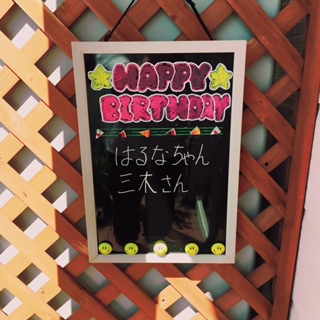 HAPPY
BIRTHDAY
はるなちゃん
三木さん